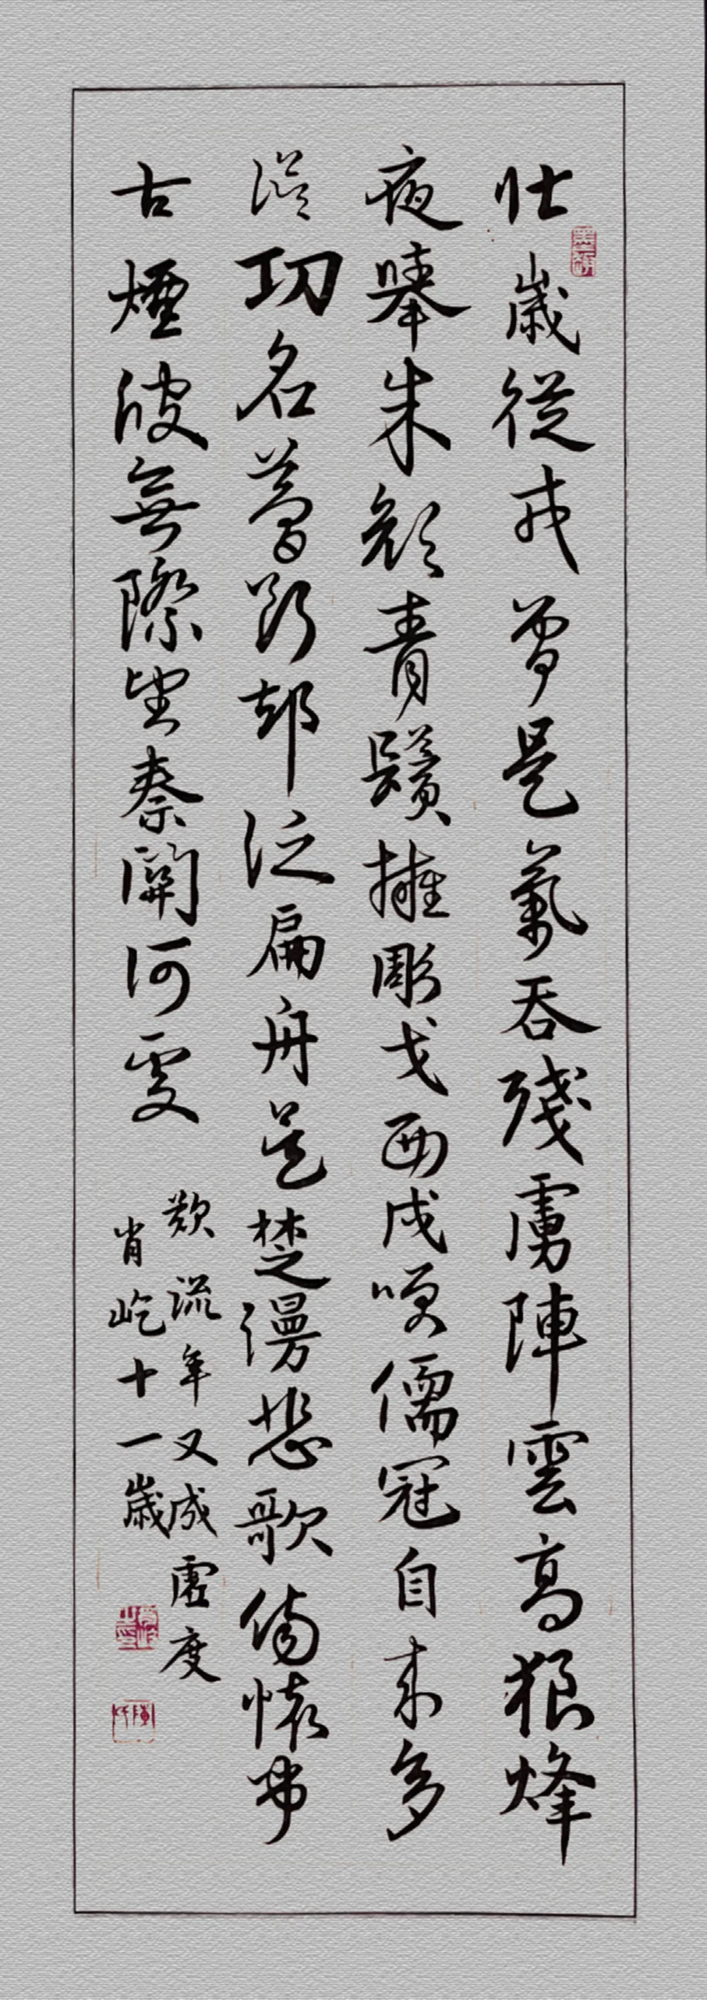 壯歲從戎曾是氣吞殘虜陣雲高狼烽
夜舉朱顏青鬢擁彫戈西戍咲儒冠自来多
誤功名夢斷却泛扁舟吴楚漫悲歌傷懷弔
古煙波無際望秦關何處
歎流年又成虛度
肖屹十一歲